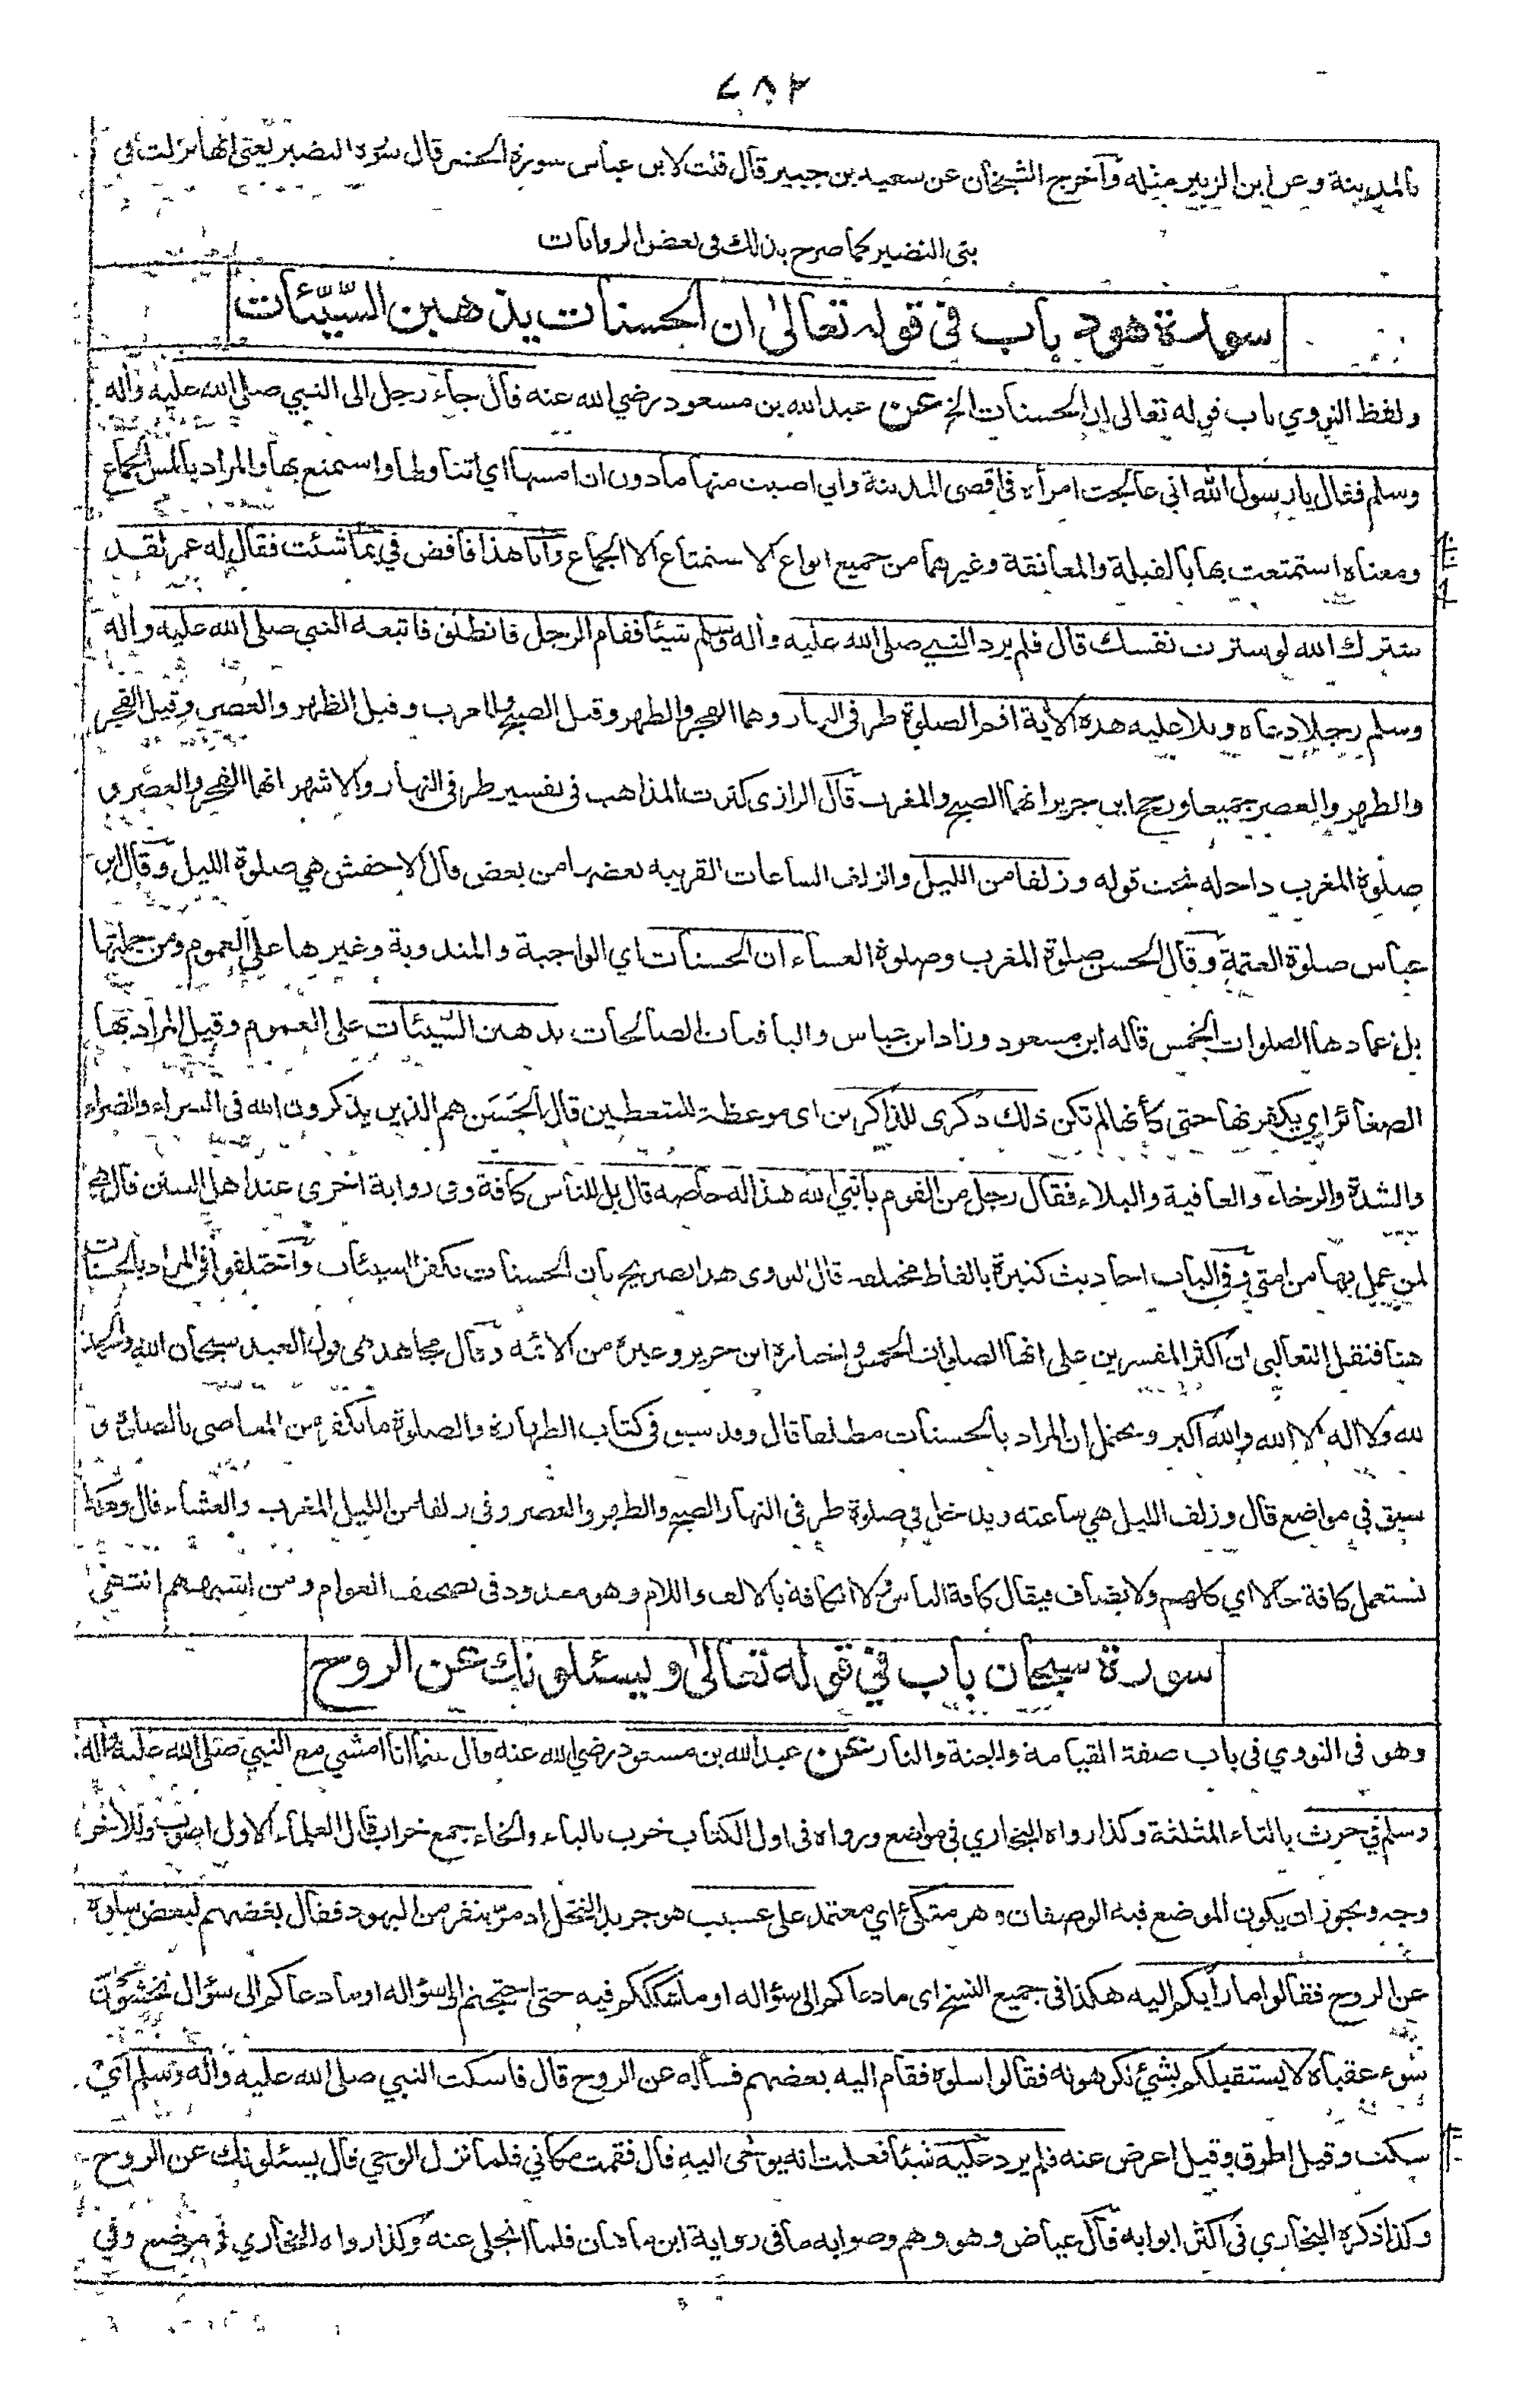 ٧٨٢
بالمدينة وعن ابن الزبير مثله وآخرج الشيخان عن سعيد بن جبير قال قلت لابن عباس سورة الحشر قال سورة النضير يعني انها نزلت في
بني النضير كما صرح بذلك في بعض الروايات
سورة هود باب في قوله تعالىٰ ان الحسنات يذهبن السّيّئات
ولفظ النووي باب قوله تعالى ان الحسنات الخ عن عبد الله بن مسعود رضي الله عنه قال جاء رجل الى النبي صلى الله عليه وأله
وسلم فقال يا رسول الله اني عالجت امرأة في اقصى المدينة واني اصبت منها ما دون ان امسها اي اتناولها واستمتع بها والمراد بالمس الجماع
ومعناه استمتعت بها بالقبلة والمعانقة وغيرهما من جميع انواع الاستمتاع الا الجماع وأنا هذا فاقض في بما شئت فقال له عمر لقد
سترك الله لو سترت نفسك قال فلم يرد النبي صلى الله عليه وأله وسلم شيئا فقام الرجل فانطلق فاتبعه النبي صلى الله عليه وأله
وسلم رجلا دعاه وتلا عليه هذه الأية اقم الصلوة طرفي النهار وهما الفجر والظهر وقيل الصبح والمغرب وقيل الظهر والعصر وقيل الفجر
والظهر والعصر جميعا ورجح ابن جرير انهما الصبح والمغرب قال الرازي كثرت المذاهب في تفسير طرفي النهار والاشهر انهما الفجر والعصر و
صلوة المغرب داخلة تحت قوله وزلفا من الليل والزلف الساعات القريبة بعضها من بعض قال الاخفش هي صلوة الليل وقال ابن
عباس صلوة العتمة وقال الحسن صلوة المغرب وصلوة العشاء ان الحسنات اي الواجبة والمندوبة وغيرها على العموم ومن جملتها
بل عمادها الصلوات الخمس قاله ابن مسعود وزاد ابن عباس والباقيات الصالحات يذهبن السّيئات على العموم وقيل المراد بها
الصغائر اي يكفرنها حتى كأنها لم تكن ذلك ذكرى للذاكرين اي موعظة للمتعظين قال الحسن هم الذين يذكرون الله في السراء والضراء
والشدة والرخاء والعافية والبلاء فقال رجل من القوم يا نبي الله هذا له خاصة قال بل للناس كافة وفي رواية اخرى عند اهل السنن قال هي
لمن عمل بها من امتي وفي الباب احاديث كثيرة بالفاظ مختلفة قال النووي هذا تصريح بان الحسنات تكفر السيئات واختلفوا في المراد بالحسنات
هنا فنقل الثعالبي ان اكثر المفسرين على انها الصلوات الخمس واختاره ابن جرير وغيره من الائمة وقال مجاهد هي قول العبد سبحان الله والحمد
لله ولا اله الا الله والله اكبر ويحتمل ان المراد بالحسنات مطلقا قال وقد سبق في كتاب الطهارة والصلوة ما يكفر من المعاصي بالصلوة و
سبق في مواضع قال وزلف الليل هي ساعته ويدخل في صلوة طرفي النهار الصبح والظهر والعصر وفي زلفا من الليل المغرب والعشاء قال وهكذا
تستعمل كافة حالا اي كلهم ولا يضاف فيقال كافة الناس ولا الكافة بالالف واللام وهو معدود في تصحيف العوام ومن اشبههم انتهى
سورة سبحان باب في قوله تعالىٰ ويسئلونك عن الروح
وهو في النووي في باب صفة القيامة والجنة والنار عن عبد الله بن مسعود رضي الله عنه قال بينما انا امشي مع النبي صلى الله عليه وأله
وسلم في حرث بالثاء المثلثة وكذا رواه البخاري في مواضع ورواه في اول الكتاب خرب بالباء والخاء جمع خراب قال العلماء الاول اصوب وللأخر
وجه ويجوز ان يكون الموضع فيه الوصفان وهو متكئ اي معتمد على عسيب هو جريد النخل اذ مرّ بنفر من اليهود فقال بعضهم لبعض سلوه
عن الروح فقالوا ما رأيكم اليه هكذا في جميع النسخ اي ما دعاكم الى سؤاله او ما شككم فيه حتى احتجتم الى سؤاله او ما دعاكم الى سؤال تخشون
سوء عقباه لا يستقبلكم بشئ تكرهونه فقالوا سلوه فقام اليه بعضهم فسأله عن الروح قال فاسكت النبي صلى الله عليه وأله وسلم اي
سكت وقيل اطرق وقيل اعرض عنه فلم يرد عليه شيئا فعلمت انه يوحى اليه قال فقمت مكاني فلما نزل الوحي قال يسئلونك عن الروح
وكذا ذكره البخاري في اكثر ابوابه قال عياض وهو وهم وصوابه ما في رواية ابن ماهان فلما انجلى عنه وكذا رواه البخاري في موضع وفي